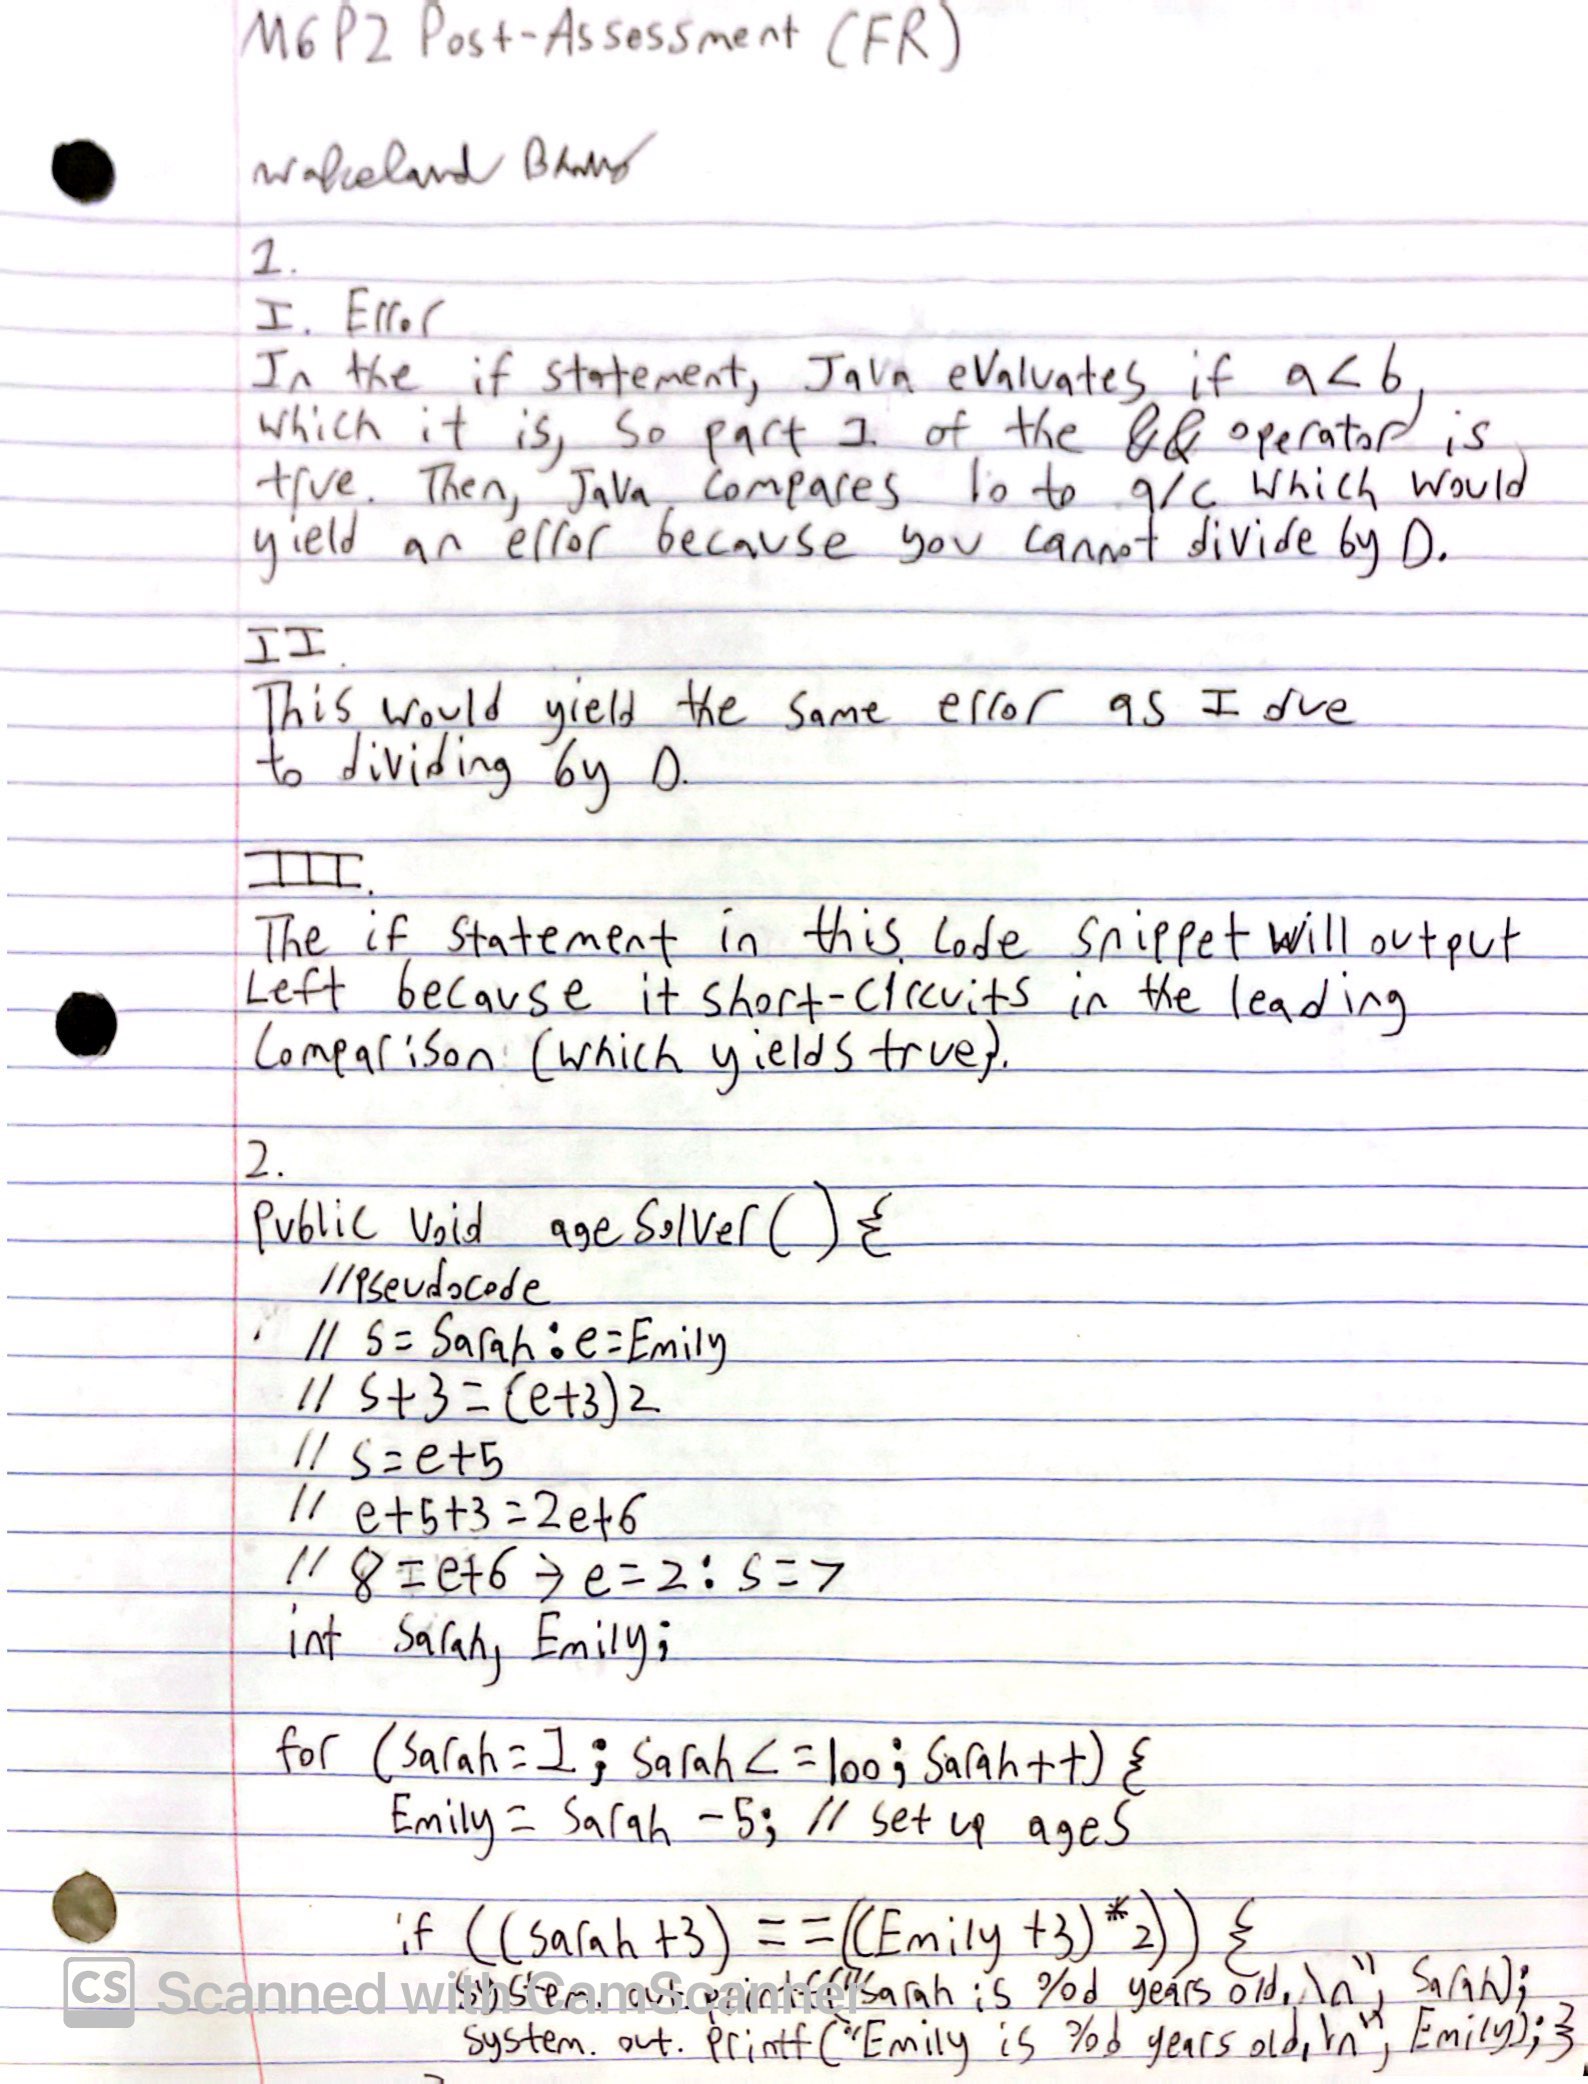 M6P2 Post-Assessment (FR)
Wakeland
1.
I. Error
In the if statement, Java evaluates if a<b,
which it is, so part 1 of the && operator is
true. Then, Java compares 10 to a/c which would
yield an error because you cannot divide by 0.
II.
This would yield the same error as I due
to dividing by 0.
III.
The if statement in this code snippet will output
Left because it short-circuits in the leading
comparison (which yields true).
2.
public void ageSolver() {
//pseudocode
// S = Sarah : e = Emily
// S+3 = (e+3)2
// S=e+5
// e+5+3=2e+6
// 8=e+6 → e=2: S=7
int Sarah, Emily;
for (Sarah=1; Sarah<=100; Sarah++) {
Emily = Sarah -5; // set up ages
if ((Sarah +3) == ((Emily +3)*2)) {
System.out.printf("Sarah is %d years old.\n", Sarah);
System.out.printf("Emily is %d years old.\n", Emily);}
CS Scanned with CamScanner